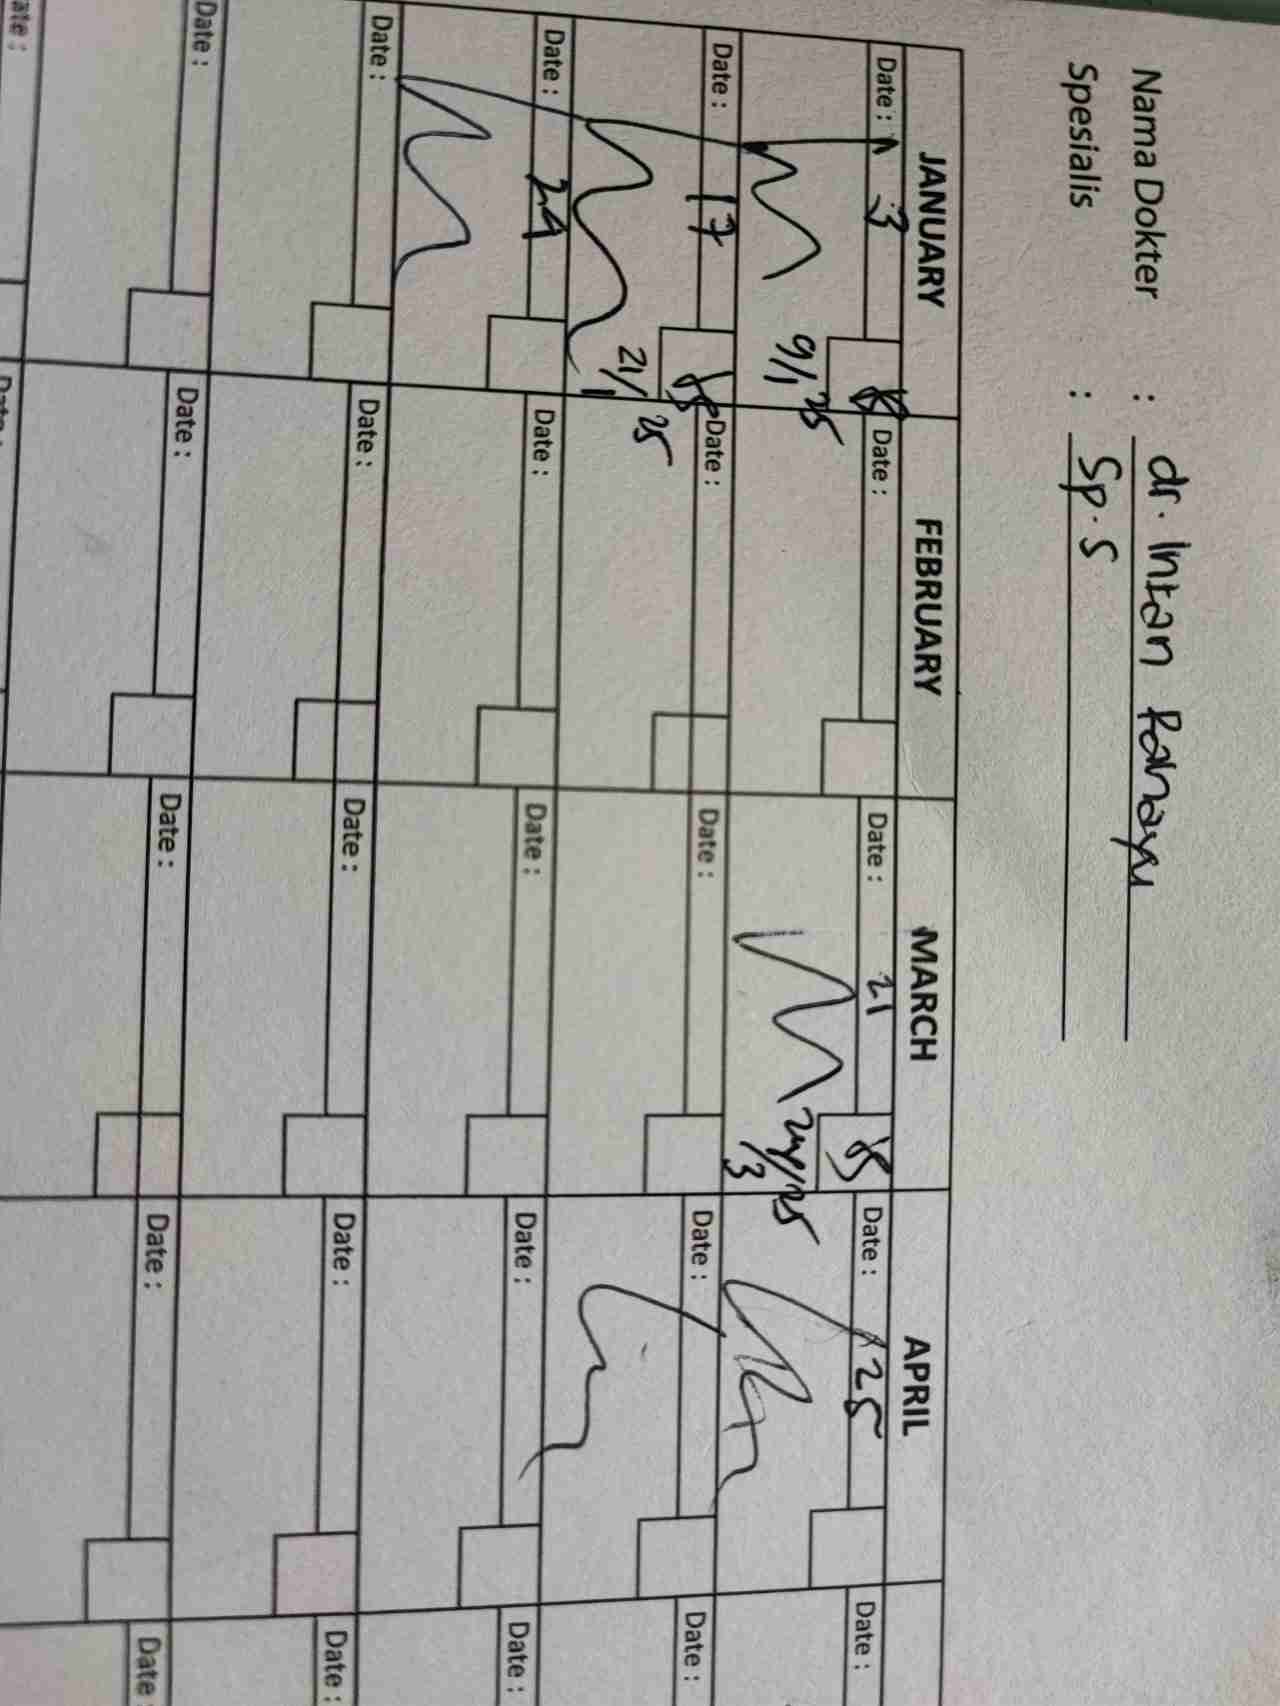 Nama Dokter : dr. Intan Rahayu
Spesialis : Sp.S
JANUARY FEBRUARY MARCH APRIL
Date : 3 Date : Date : 21 Date : 25 Date :
9/1 25
Date : 17 Date : Date : Date : Date :
21/1 25
Date : 24 Date : Date : Date : Date :
Date : Date : Date : Date : Date :
Date : Date : Date : Date : Date :